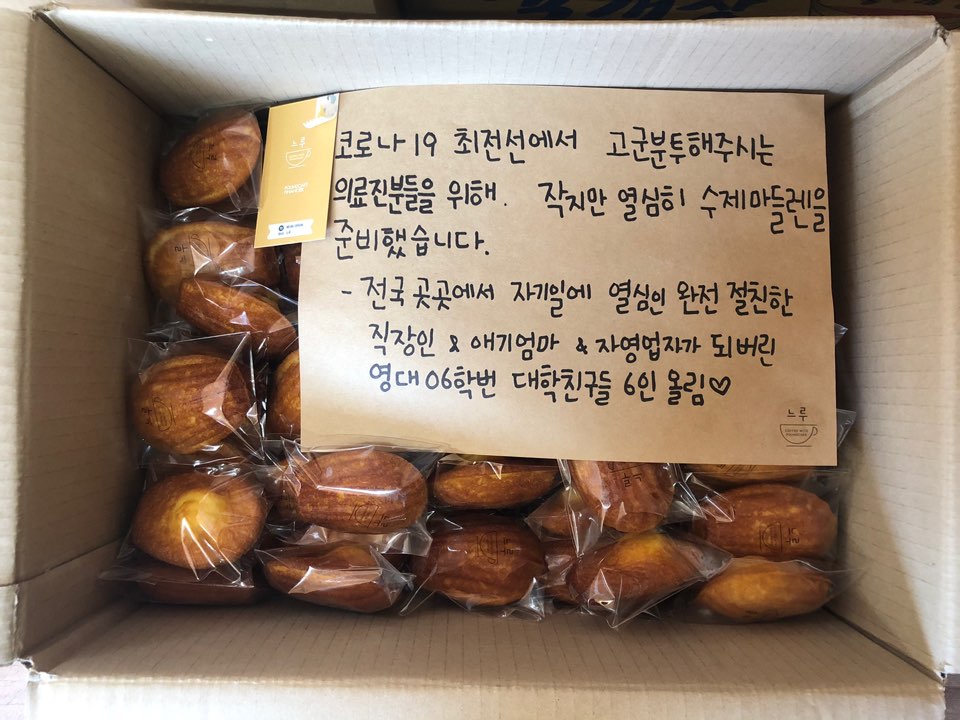 코로나 19 최전선에서 고군분투해주시는
의료진분들을 위해. 작지만 열심히 수제마들렌을
준비했습니다.
- 전국 곳곳에서 자기일에 열심인 완전 절친한
직장인 & 애기엄마 & 자영업자가 되버린
영대 06학번 대학친구들 6인 올림♡
느루
COFFEE WITH
느루
느루